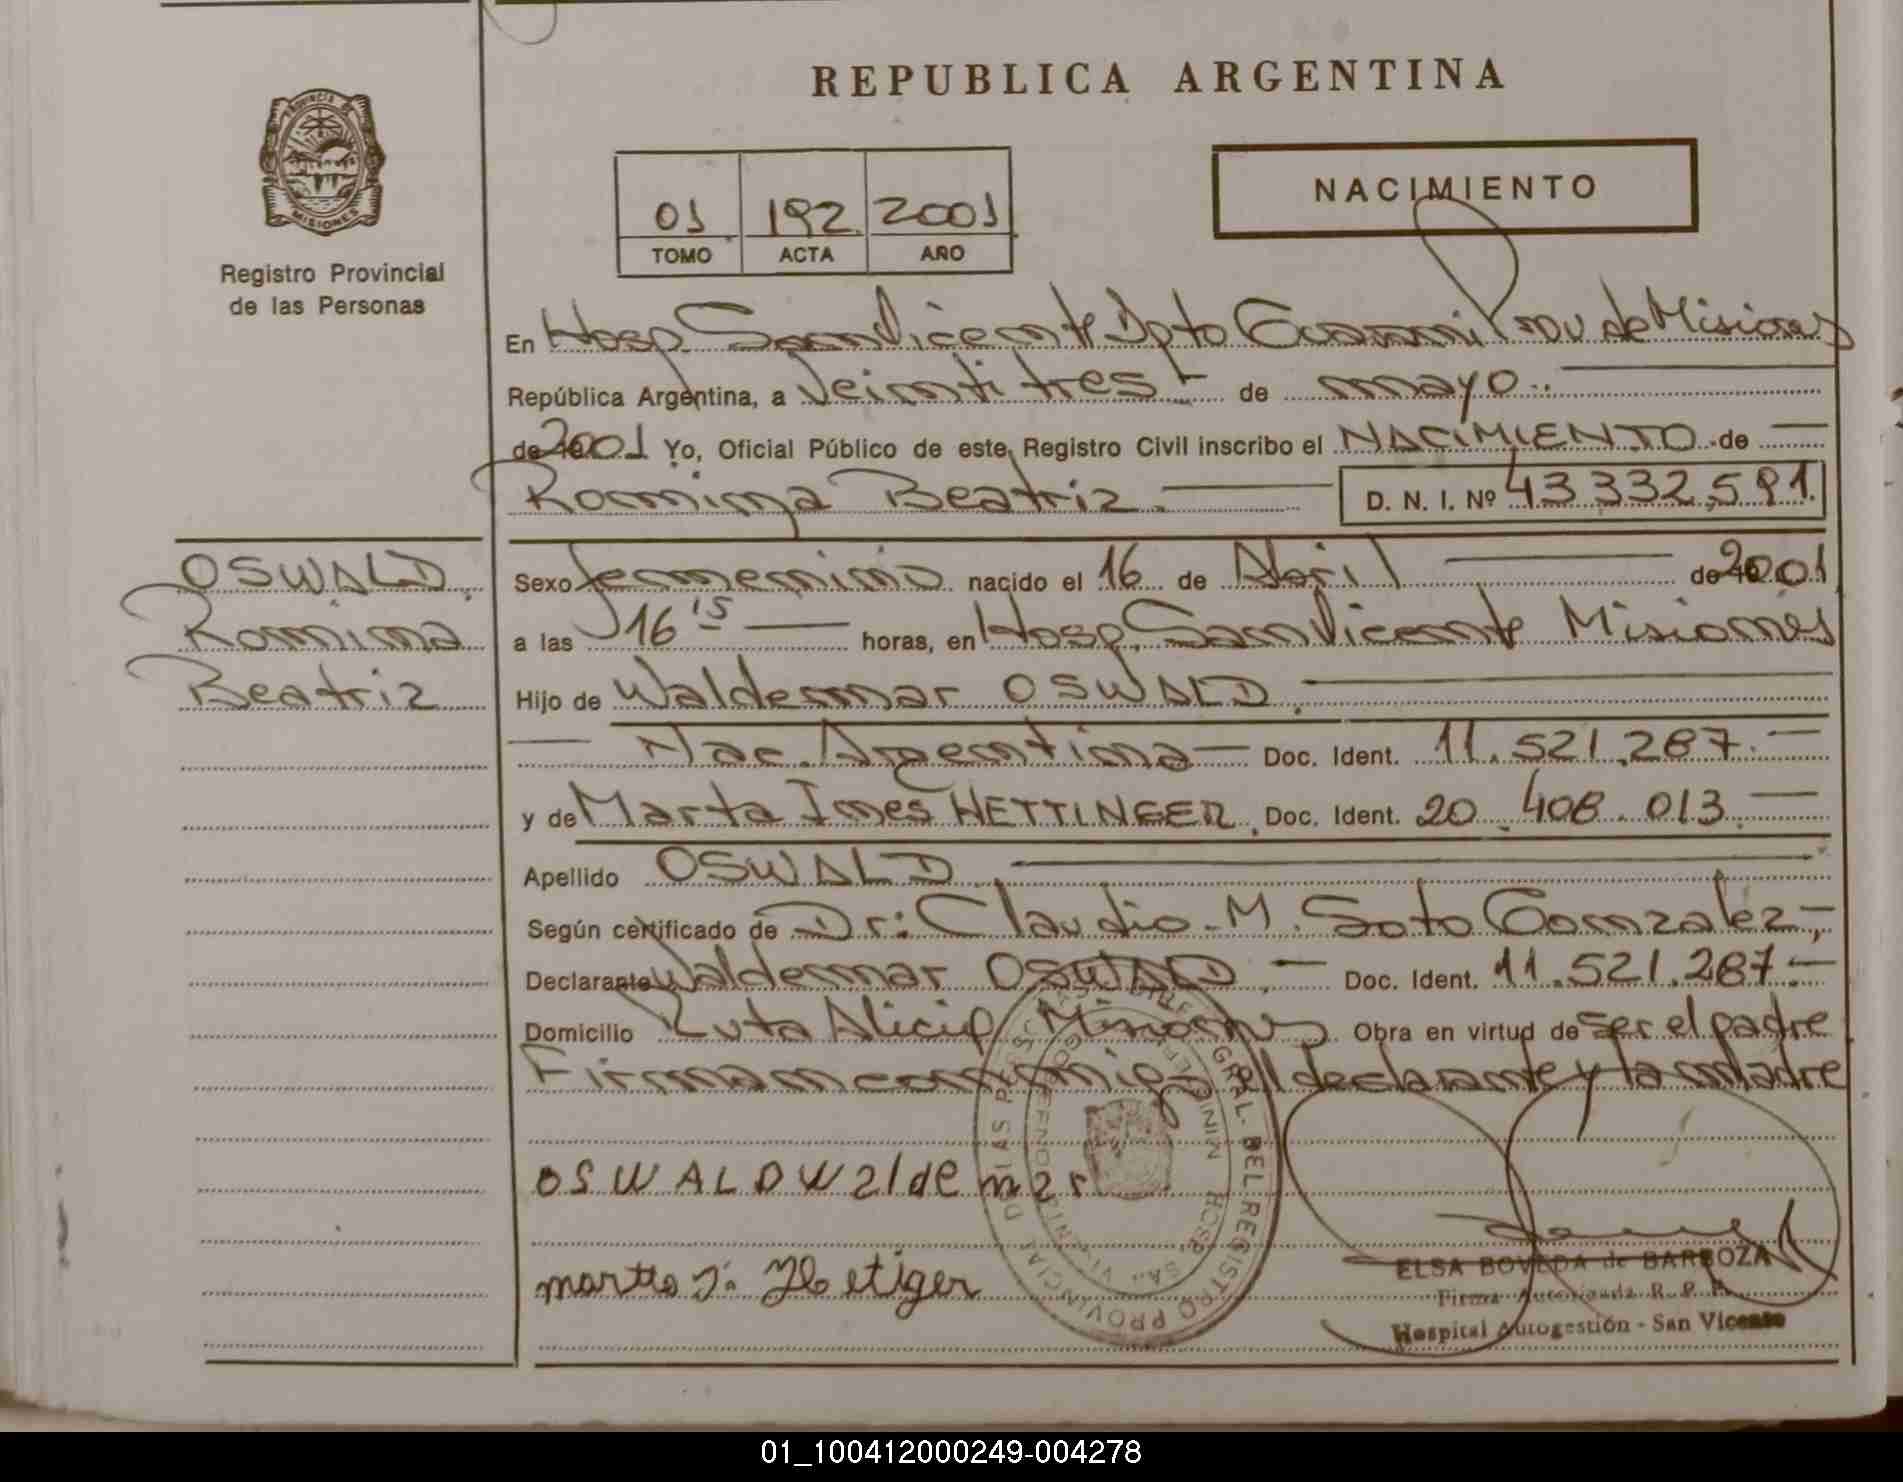 REPUBLICA ARGENTINA
PROVINCIA DE
MISIONES
Registro Provincial
de las Personas
01 192 2001
TOMO ACTA AÑO
NACIMIENTO
En Hosp. San Vicente Dpto Guarani Prov de Misiones
República Argentina, a Veinti tres de mayo
de 2001 Yo, Oficial Público de este Registro Civil inscribo el NACIMIENTO de
Romina Beatriz. D. N. I. Nº 43.332.591.
OSWALD.
Romina
Beatriz
Sexo femenino nacido el 16 de Abril de 2001
a las 16 15 horas, en Hosp. San Vicente Misiones
Hijo de Waldemar OSWALD.
Nac. Argentina Doc. Ident. 11.521.287.
y de Marta Ines HETTINGER. Doc. Ident. 20.408.013
Apellido OSWALD
Según certificado de Dr: Claudio M. Soto Gonzalez,
Declarante Waldemar OSWALD. Doc. Ident. 11.521.287.
Domicilio Ruta Alicia Misiones Obra en virtud de ser el padre
Firman conmigo el declarante y la madre
OSWALD Waldemar
martta I. Hetiger
DIREC. GRAL. DEL REGISTRO PROVINCIAL DE LAS PERSONAS
HOSP.
ELSA BOVEDA de BARBOZA
Firma Autorizada R. P. P.
Hospital Autogestión - San Vicente
01_100412000249-004278